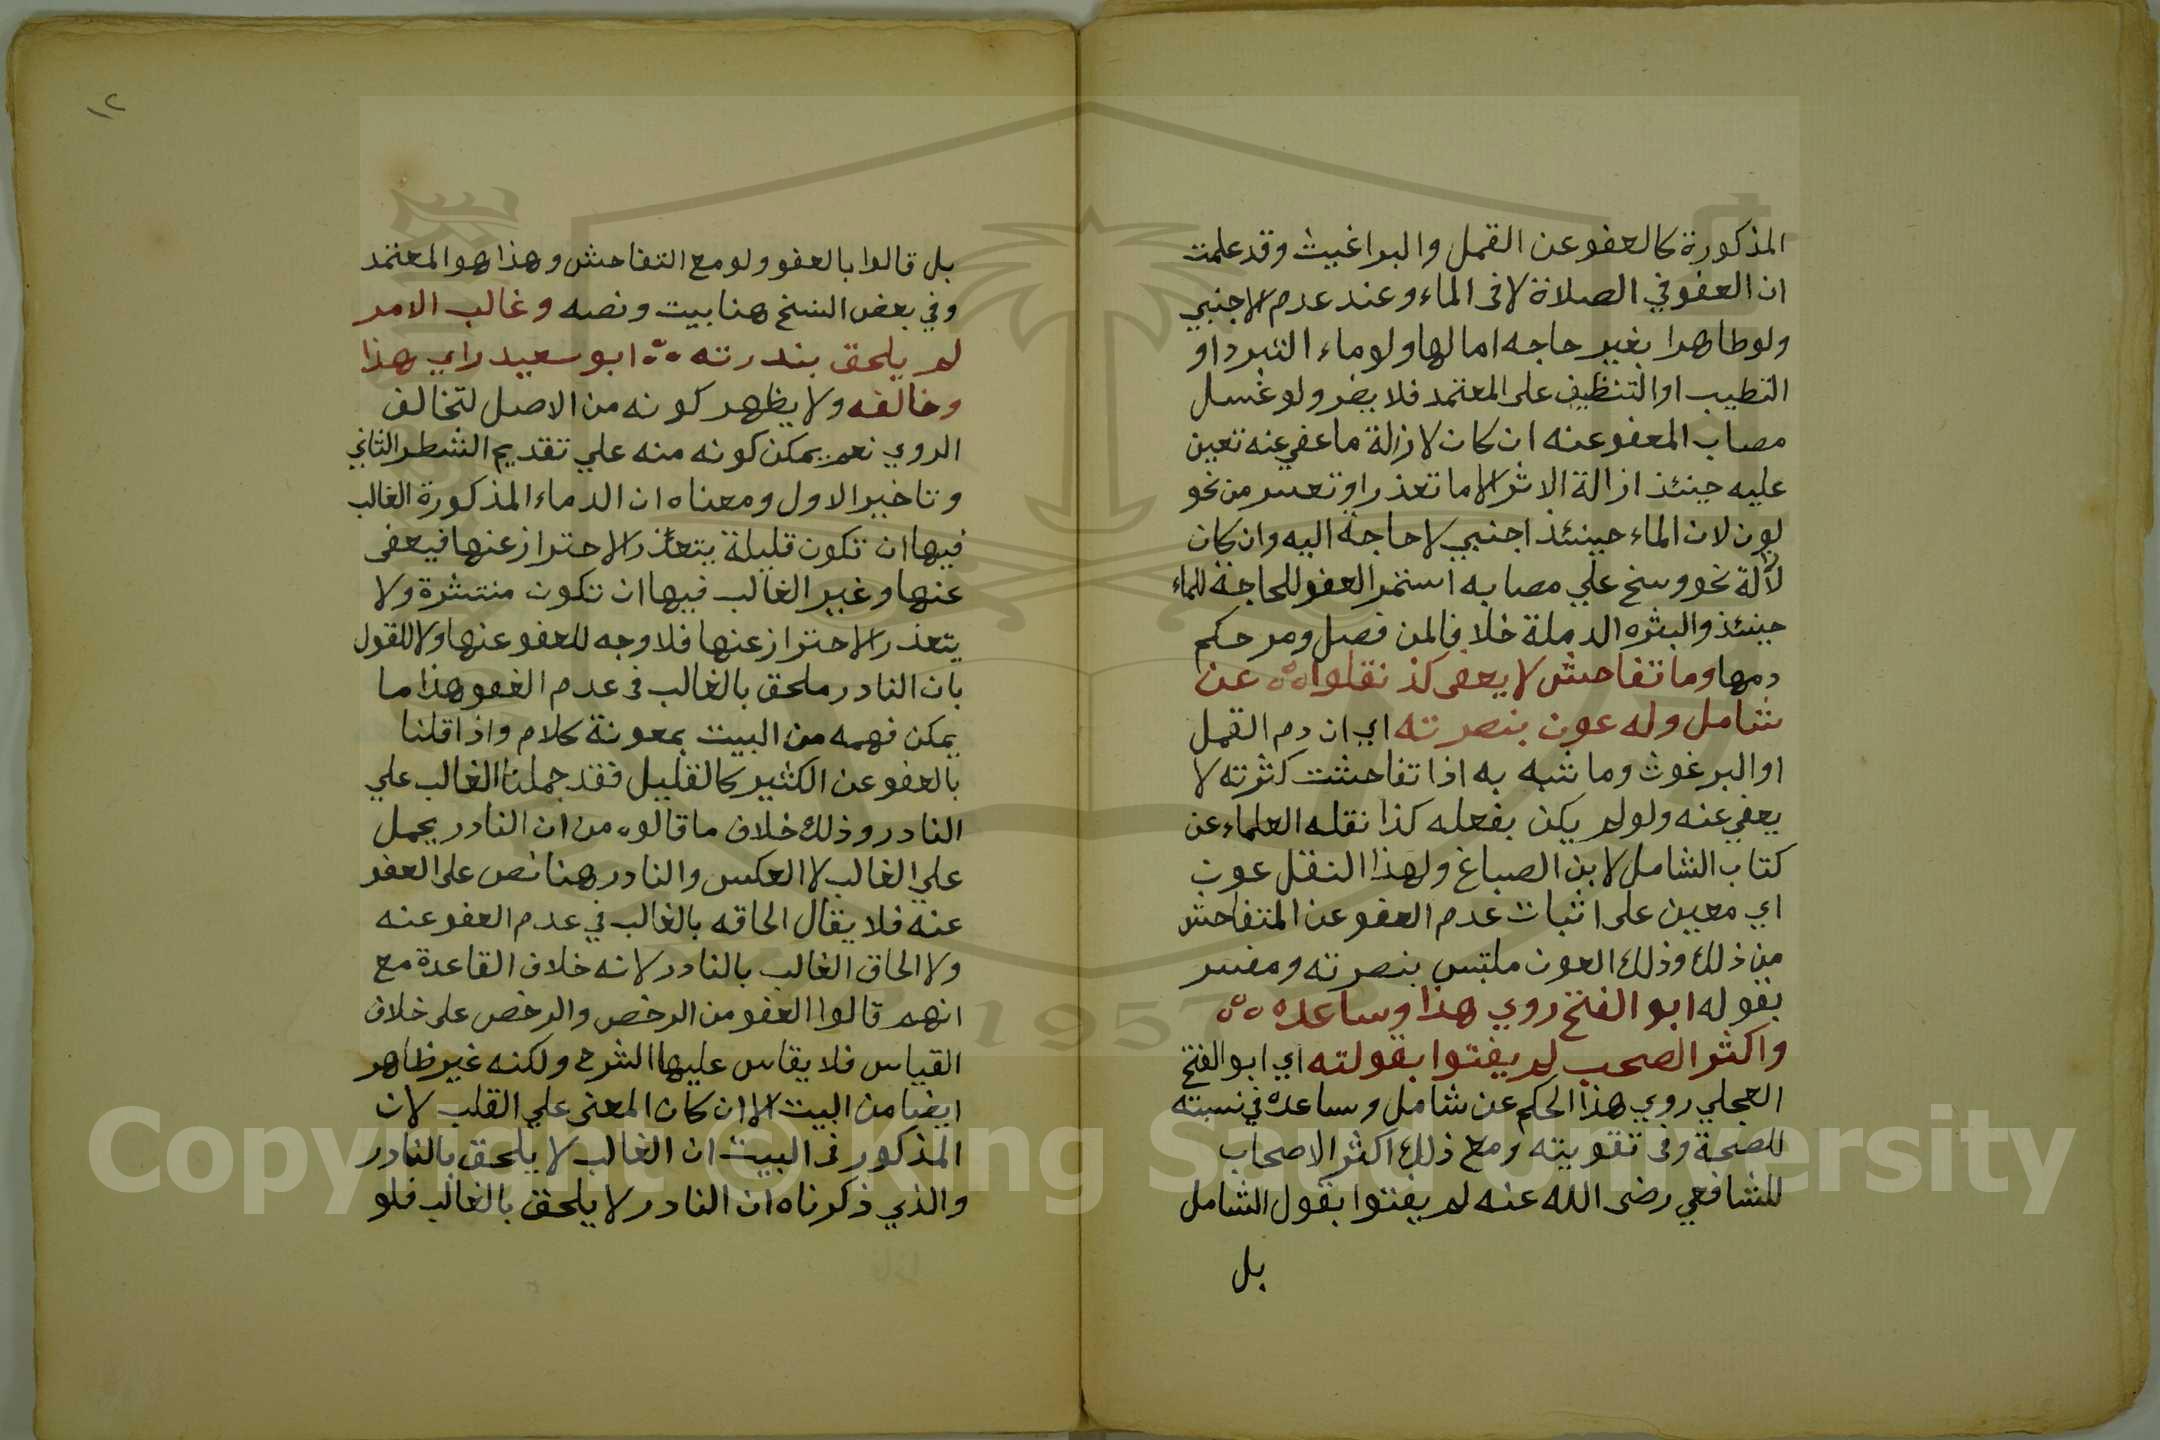 المذكورة كالعفو عن القمل والبراغيث وقد علمت
ان العفو في الصلاة لا في الماء وعند عدم الاجنبي
ولو طاهرا بغير حاجه اما لها ولو ماء التبرد او
التطيب او التنظيف على المعتمد فلا يضر ولو غسل
مصاب المعفو عنه ان كان لازالة ما عفي عنه تعين
عليه حينئذ ازالة الاثر الا ما تعذر او تعسر من نحو
لون لان الماء حينئذ اجنبي لا حاجة اليه وان كان
لازالة نحو وسخ علي مصابه استمر العفو للحاجة للماء
حينئذ والبثره الدملة خلافا لمن فصل ومر حكم
دمها وما تفاحش لا يعفى كذ نقلوا ه ه عن
شامل وله عون بنصرته اي ان دم القمل
او البرغوث وما شبه به اذا تفاحشت كثرته لا
يعفي عنه ولو لم يكن بفعله كذا نقله العلماء عن
كتاب الشامل لابن الصباغ ولهذا النقل عون
اي معين على اثبات عدم العفو عن المتفاحش
من ذلك وذلك العون ملتبس بنصرته ومفسر
بقوله ابو الفتح روي هذا وساعده ه ه
واكثر الصحب لم يفتوا بقولته اي ابو الفتح
العجلي روي هذا الحكم عن شامل وساعده في نسبته
للصحة وفي تقويته ومع ذلك اكثر الاصحاب
للشافعي رضى الله عنه لم يفتوا بقول الشامل
بل
١٢
بل قالوا بالعفو ولو مع التفاحش وهذا هو المعتمد
وفي بعض النسخ هنا بيت ونصه وغالب الامر
لم يلحق بندرته ه ه ابو سعيد راي هذا
وخالفه ولا يظهر كونه من الاصل لتخالف
الروي نعم يمكن كونه منه علي تقديم الشطر الثاني
وتاخير الاول ومعناه ان الدماء المذكورة الغالب
فيها ان تكون قليلة يتعذر الاحتراز عنها فيعفى
عنها وغير الغالب فيها ان تكون منتشرة ولا
يتعذر الاحتراز عنها فلا وجه للعفو عنها ولا للقول
بان النادر ملحق بالغالب في عدم العفو هذا ما
يمكن فهمه من البيت بمعونة كلام واذا قلنا
بالعفو عن الكثير كالقليل فقد حملنا الغالب علي
النادر وذلك خلاف ما قالوه من ان النادر يحمل
علي الغالب لا العكس والنادر هنا نص على العفو
عنه فلا يقال الحاقه بالغالب في عدم العفو عنه
ولا الحاق الغالب بالنادر لانه خلاف القاعدة مع
انهم قالوا العفو من الرخص والرخص على خلاف
القياس فلا يقاس عليها الشرح ولكنه غير ظاهر
ايضا من البيت الا ان كان المعنى علي القلب لان
المذكور في البيت ان الغالب لا يلحق بالنادر
والذي ذكرناه ان النادر لا يلحق بالغالب فلو